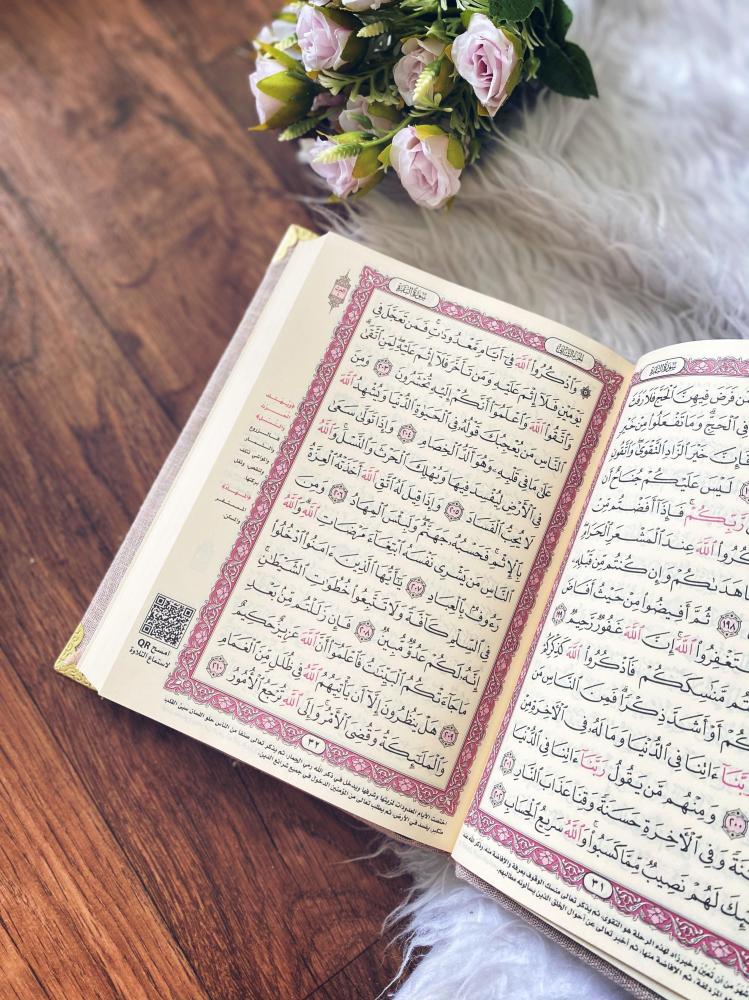 سُورَةُ البَقَرَةِ
فَرَضَ فِيهِنَّ ٱلْحَجَّ فَلَا رَفَثَ
فِي ٱلْحَجِّ وَمَا تَفْعَلُوا۟ مِنْ خَيْرٍ
خَيْرَ ٱلزَّادِ ٱلتَّقْوَىٰ وَٱتَّقُونِ
لَيْسَ عَلَيْكُمْ جُنَاحٌ أَن
رَّبِّكُمْ فَإِذَآ أَفَضْتُم مِّنْ
ٱللَّهَ عِندَ ٱلْمَشْعَرِ ٱلْحَرَامِ
هَدَىٰكُمْ وَإِن كُنتُم مِّن قَبْلِهِۦ
١٩٨ ثُمَّ أَفِيضُوا۟ مِنْ حَيْثُ أَفَاضَ
ٱللَّهَ إِنَّ ٱللَّهَ غَفُورٌ رَّحِيمٌ ١٩٩
مَّنَٰسِكَكُمْ فَٱذْكُرُوا۟ ٱللَّهَ كَذِكْرِكُمْ
أَوْ أَشَدَّ ذِكْرًا فَمِنَ ٱلنَّاسِ مَن
رَبَّنَآ ءَاتِنَا فِي ٱلدُّنْيَا وَمَا لَهُۥ فِي ٱلْءَاخِرَةِ مِنْ
٢٠٠ وَمِنْهُم مَّن يَقُولُ رَبَّنَآ ءَاتِنَا فِي ٱلدُّنْيَا
وَفِي ٱلْءَاخِرَةِ حَسَنَةً وَقِنَا عَذَابَ ٱلنَّارِ ٢٠١
لَهُمْ نَصِيبٌ مِّمَّا كَسَبُوا۟ وَٱللَّهُ سَرِيعُ ٱلْحِسَابِ ٢٠٢
٣١
الجُزْءُ الثَّانِي
سُورَةُ البَقَرَةِ
وَٱذْكُرُوا۟ ٱللَّهَ فِيٓ أَيَّامٍ مَّعْدُودَٰتٍ فَمَن تَعَجَّلَ فِي
يَوْمَيْنِ فَلَآ إِثْمَ عَلَيْهِ وَمَن تَأَخَّرَ فَلَآ إِثْمَ عَلَيْهِ لِمَنِ ٱتَّقَىٰ
وَٱتَّقُوا۟ ٱللَّهَ وَٱعْلَمُوٓا۟ أَنَّكُمْ إِلَيْهِ تُحْشَرُونَ ٢٠٣ وَمِنَ
ٱلنَّاسِ مَن يُعْجِبُكَ قَوْلُهُۥ فِي ٱلْحَيَوٰةِ ٱلدُّنْيَا وَيُشْهِدُ ٱللَّهَ
عَلَىٰ مَا فِي قَلْبِهِۦ وَهُوَ أَلَدُّ ٱلْخِصَامِ ٢٠٤ وَإِذَا تَوَلَّىٰ سَعَىٰ
فِي ٱلْأَرْضِ لِيُفْسِدَ فِيهَا وَيُهْلِكَ ٱلْحَرْثَ وَٱلنَّسْلَ وَٱللَّهُ
لَا يُحِبُّ ٱلْفَسَادَ ٢٠٥ وَإِذَا قِيلَ لَهُ ٱتَّقِ ٱللَّهَ أَخَذَتْهُ ٱلْعِزَّةُ
بِٱلْإِثْمِ فَحَسْبُهُۥ جَهَنَّمُ وَلَبِئْسَ ٱلْمِهَادُ ٢٠٦ وَمِنَ
ٱلنَّاسِ مَن يَشْرِي نَفْسَهُ ٱبْتِغَآءَ مَرْضَاتِ ٱللَّهِ وَٱللَّهُ
رَءُوفٌۢ بِٱلْعِبَادِ ٢٠٧ يَٰٓأَيُّهَا ٱلَّذِينَ ءَامَنُوا۟ ٱدْخُلُوا۟
فِي ٱلسِّلْمِ كَآفَّةً وَلَا تَتَّبِعُوا۟ خُطُوَٰتِ ٱلشَّيْطَٰنِ
إِنَّهُۥ لَكُمْ عَدُوٌّ مُّبِينٌ ٢٠٨ فَإِن زَلَلْتُم مِّنۢ بَعْدِ
مَا جَآءَتْكُمُ ٱلْبَيِّنَٰتُ فَٱعْلَمُوٓا۟ أَنَّ ٱللَّهَ عَزِيزٌ حَكِيمٌ
٢٠٩ هَلْ يَنظُرُونَ إِلَّآ أَن يَأْتِيَهُمُ ٱللَّهُ فِي ظُلَلٍ مِّنَ ٱلْغَمَامِ
وَٱلْمَلَٰٓئِكَةُ وَقُضِيَ ٱلْأَمْرُ وَإِلَى ٱللَّهِ تُرْجَعُ ٱلْأُمُورُ ٢١٠
٣٢
امسح QR
لاستماع التلاوة